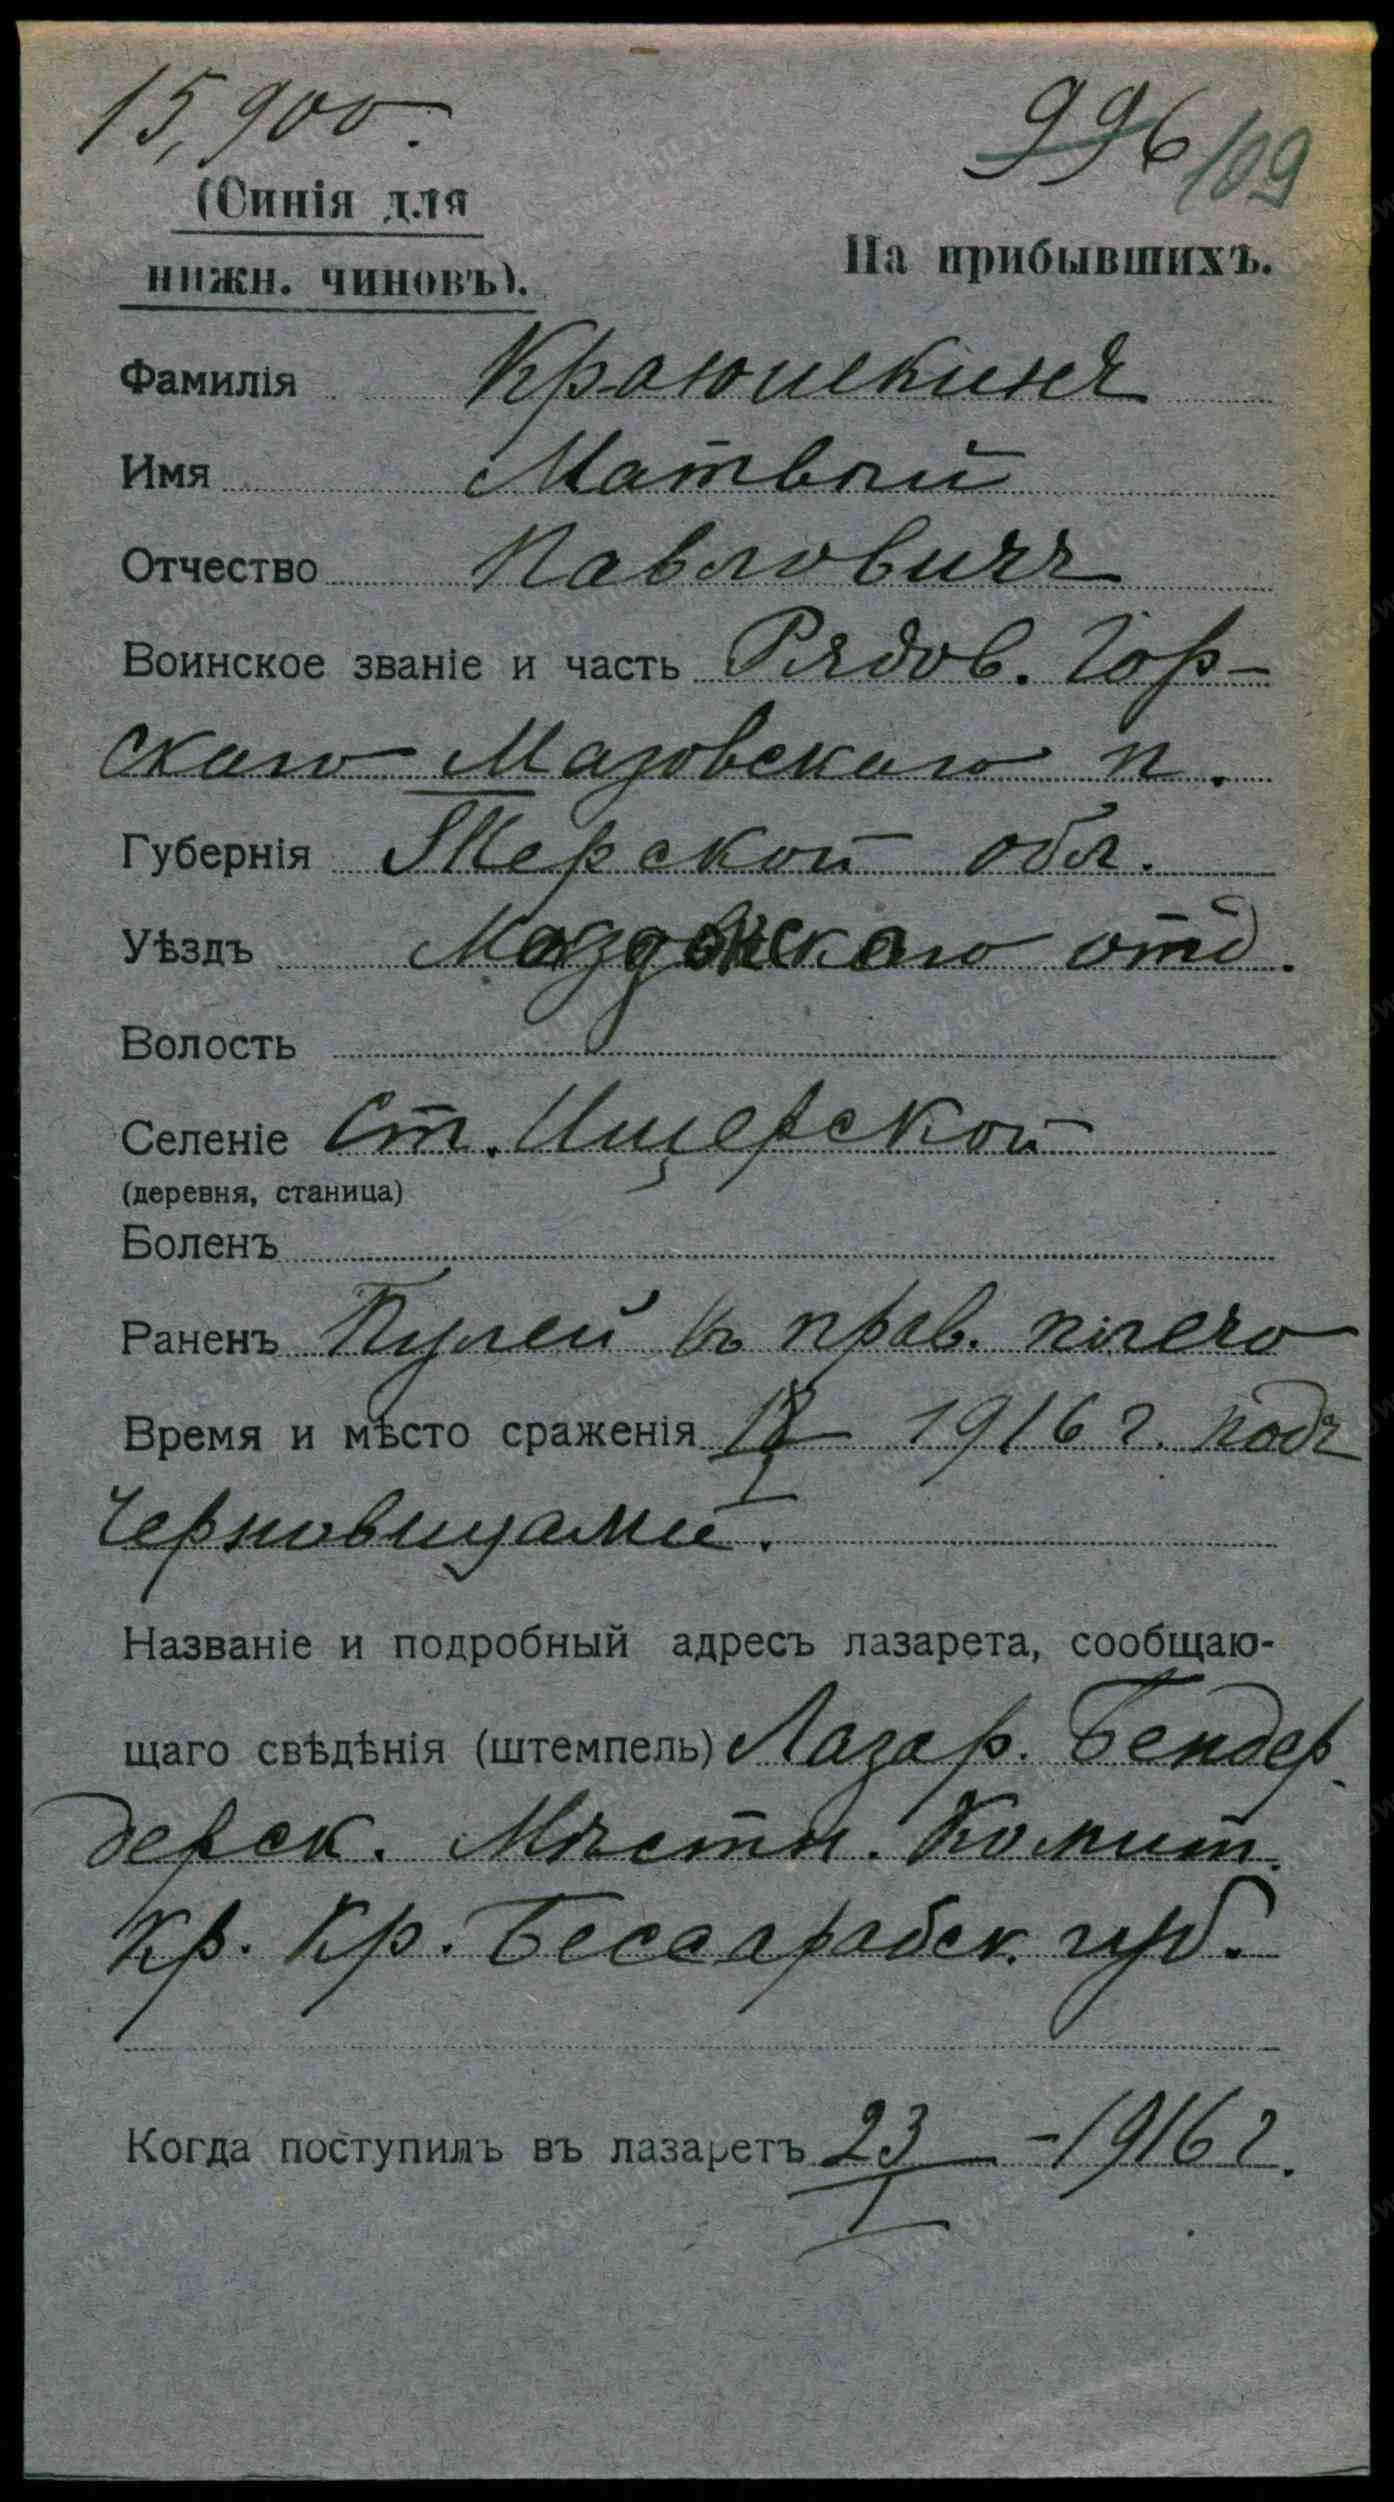 15,900.
996 109
(Синія для
нижн. чиновъ).
На прибывшихъ.
Фамилія Краюшкинъ
Имя Матвѣй
Отчество Павловичъ
Воинское званіе и часть Рядов. Гор-
скаго Мазовскаго п.
Губернія Терской обл.
Уѣздъ Моздокскаго отд.
Волость
Селеніе Ст. Ищерской
(деревня, станица)
Боленъ
Раненъ Пулей въ прав. плечо
Время и мѣсто сраженія 18/I 1916 г. подъ
Черновицами.
Названіе и подробный адресъ лазарета, сообщаю-
щаго свѣдѣнія (штемпель) Лазар. Бендер
дерск. Мѣстн. Комит.
Кр. Кр. Бессарабск. губ.
Когда поступилъ въ лазаретъ 23/I - 1916 г.